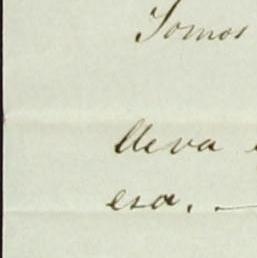 Tomos
lleva
esa. —